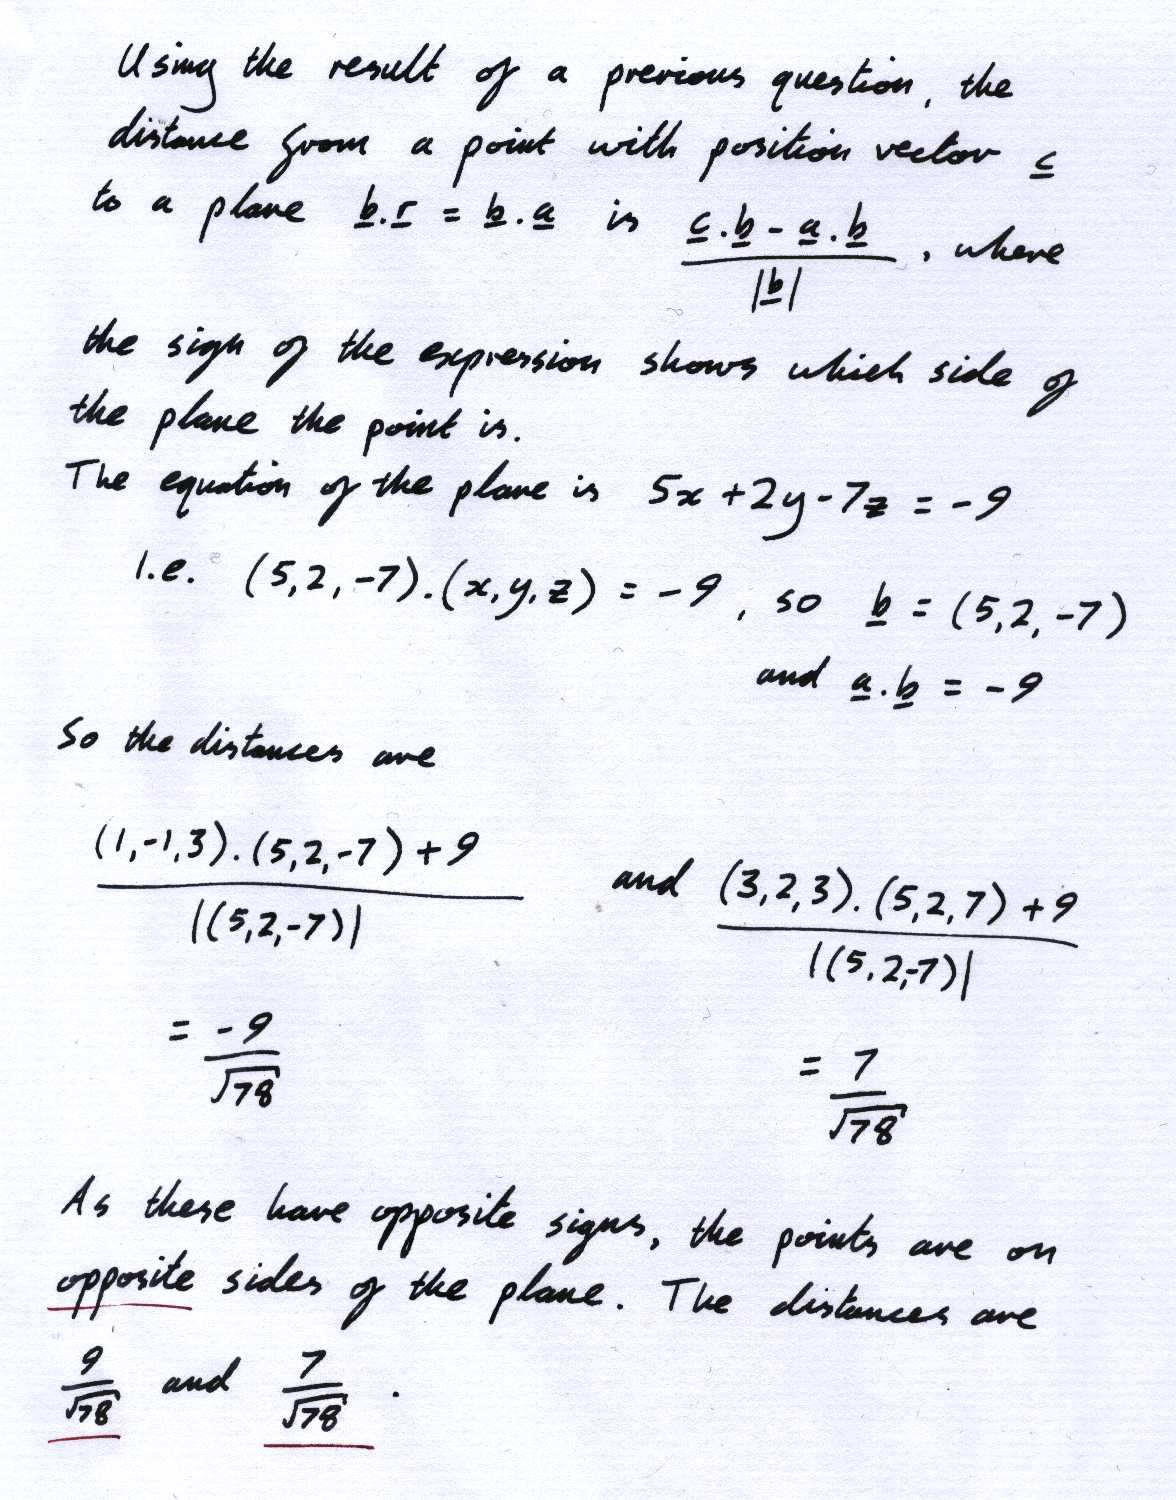 Using the result of a previous question, the
distance from a point with position vector c
to a plane b.r = b.a is (c.b - a.b)/|b|, where
the sign of the expression shows which side of
the plane the point is.
The equation of the plane is 5x+2y-7z = -9
i.e. (5,2,-7).(x,y,z) = -9, so b = (5,2,-7)
and a.b = -9
So the distances are
((1,-1,3).(5,2,-7)+9)/|(5,2,-7)| and ((3,2,3).(5,2,7)+9)/|(5,2,-7)|
= -9/√78 = 7/√78
As these have opposite signs, the points are on
opposite sides of the plane. The distances are
9/√78 and 7/√78.